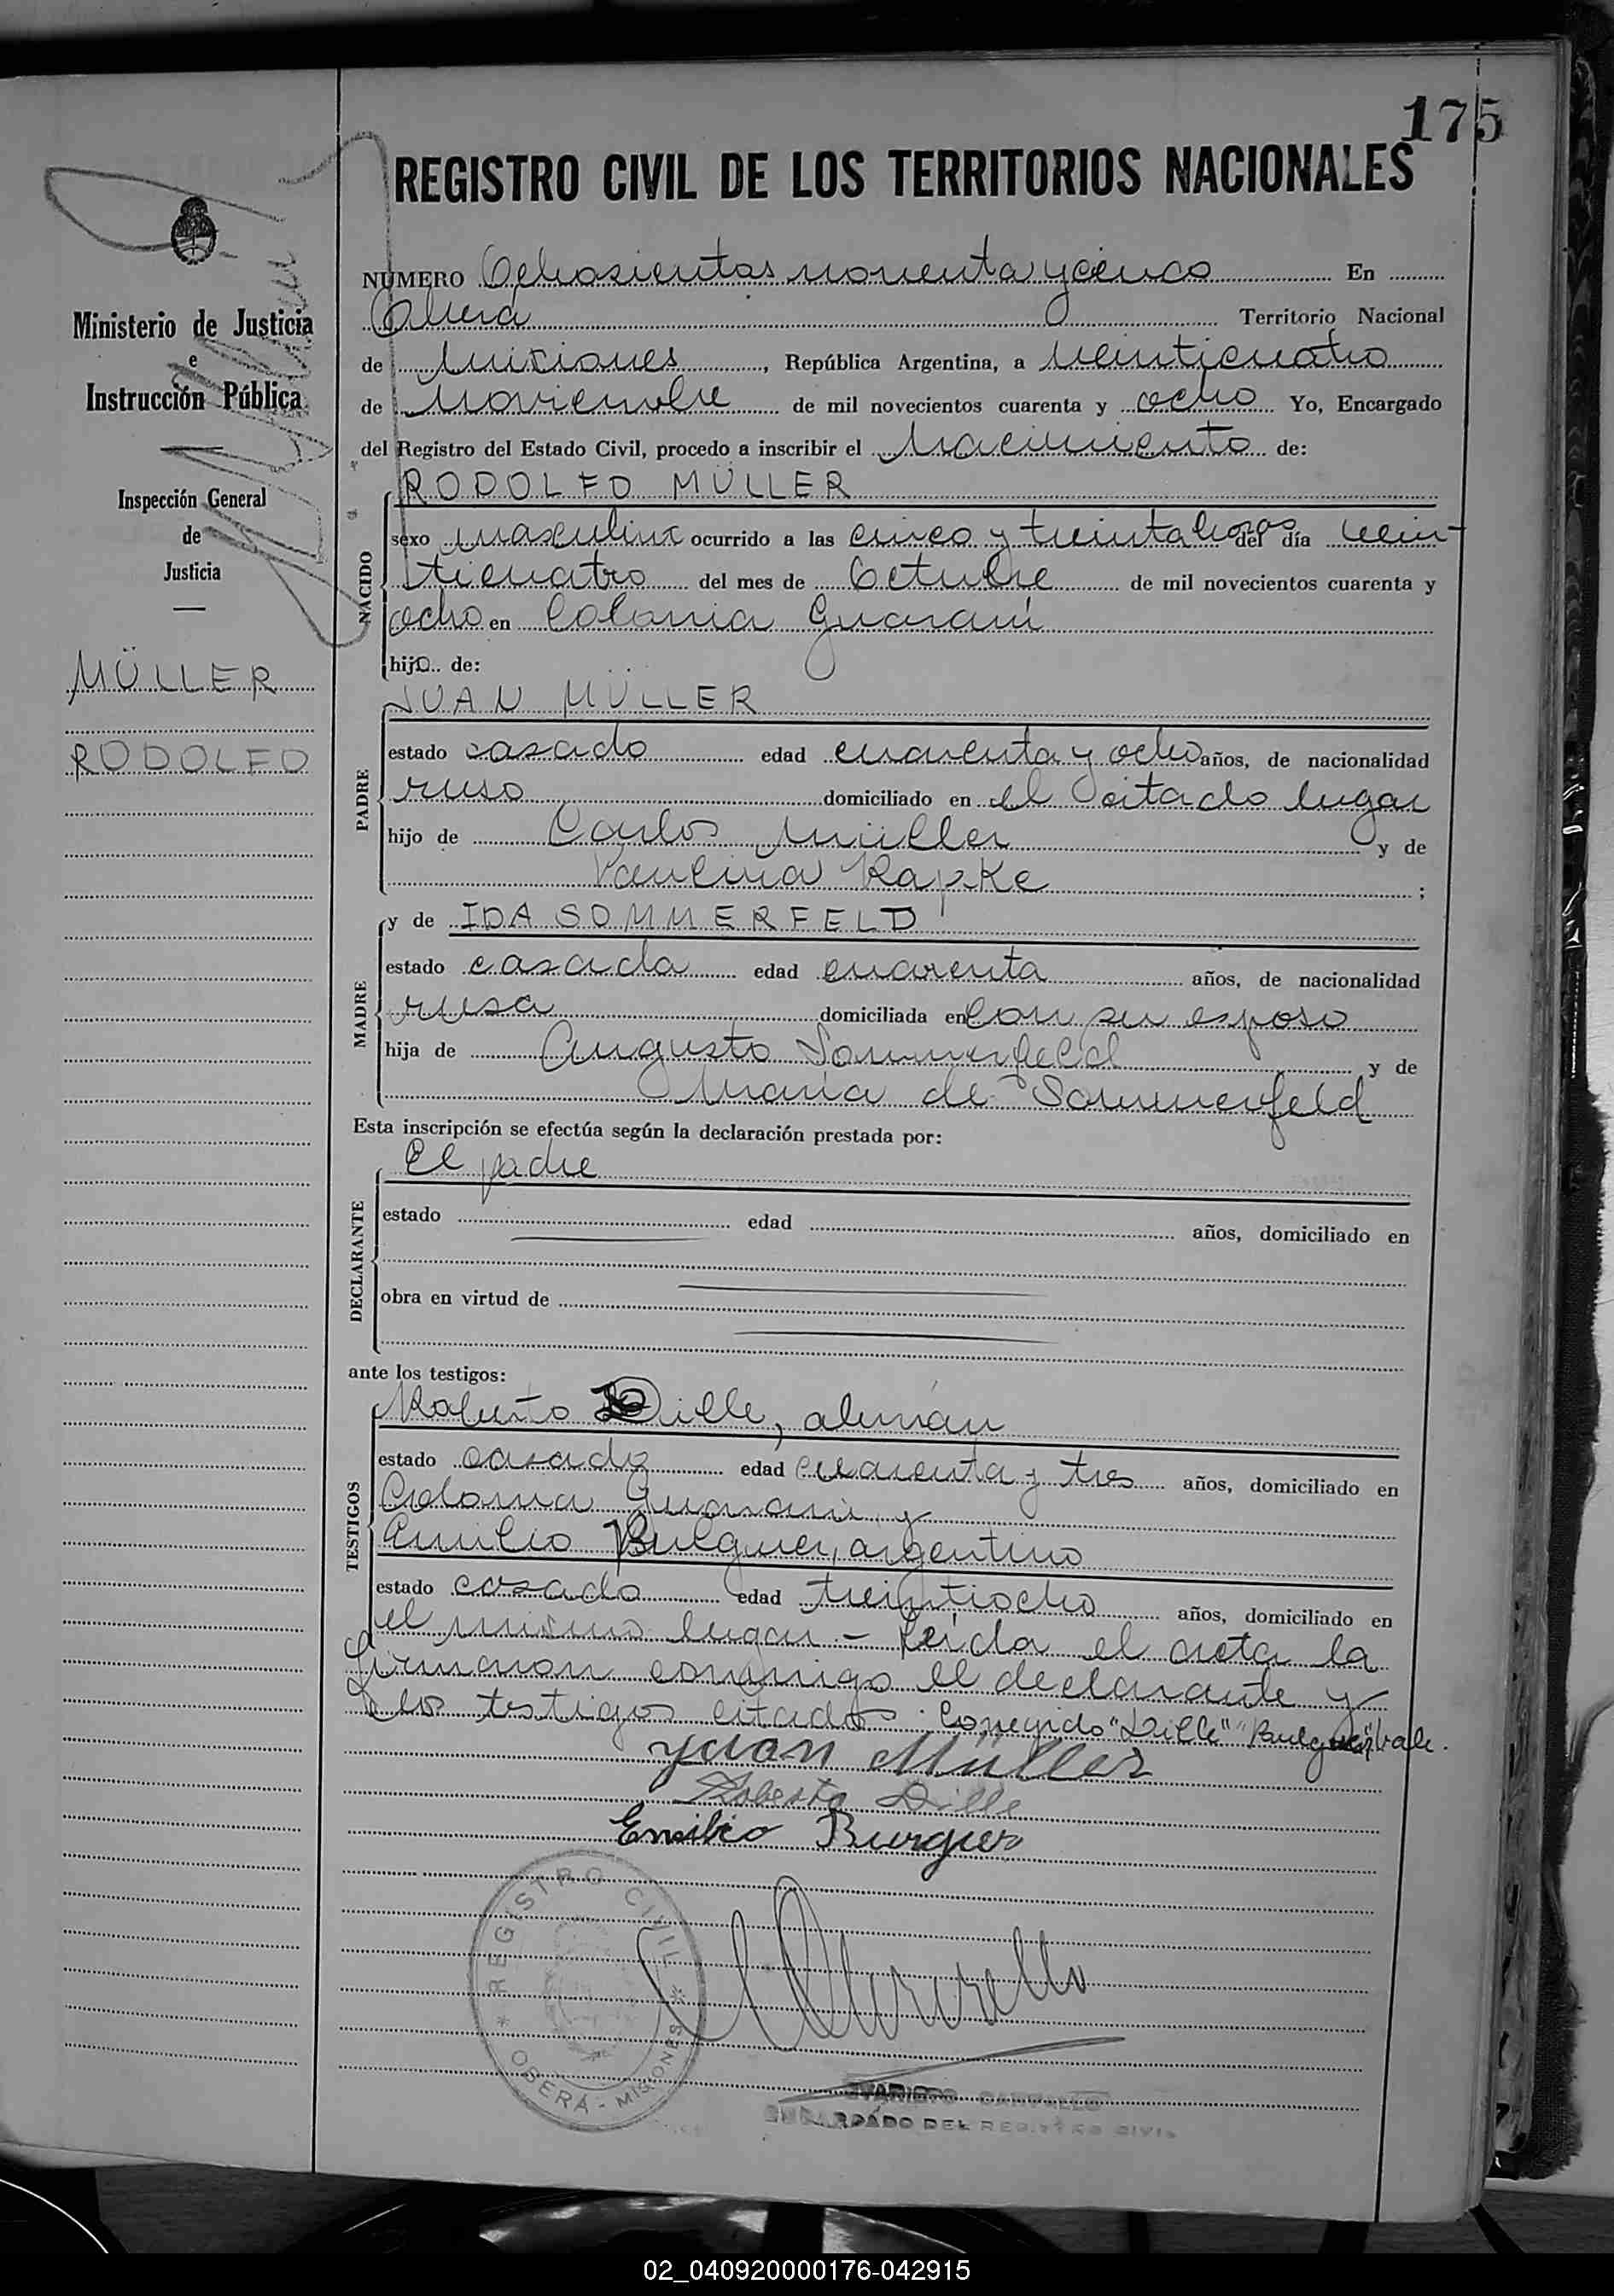 175
REGISTRO CIVIL DE LOS TERRITORIOS NACIONALES
Ministerio de Justicia
e
Instrucción Pública
Inspección General
de
Justicia
MÜLLER
RODOLFO
NÚMERO Ochosientos noventa y cinco En
Oberá Territorio Nacional
de Misiones, República Argentina, a veinticuatro
de Noviembre de mil novecientos cuarenta y ocho Yo, Encargado
del Registro del Estado Civil, procedo a inscribir el nacimiento de:
NACIDO
RODOLFO MÜLLER
sexo masculino ocurrido a las cinco y treinta horas del día vein-
ticuatro del mes de Octubre de mil novecientos cuarenta y
ocho en Colonia Guaraní
hijo de:
PADRE
JUAN MÜLLER
estado casado edad cuarenta y ocho años, de nacionalidad
ruso domiciliado en el citado lugar
hijo de Carlos Müller y de
Paulina Rapke ;
MADRE
y de IDA SOMMERFELD
estado casada edad cuarenta años, de nacionalidad
rusa domiciliada en con su esposo
hija de Augusto Sommerfeld y de
María de Sommerfeld
Esta inscripción se efectúa según la declaración prestada por:
DECLARANTE
El padre
estado edad años, domiciliado en
obra en virtud de
ante los testigos:
TESTIGOS
Roberto Dille, alemán
estado casado edad cuarenta y tres años, domiciliado en
Colonia Guaraní y
Emilio Bulguer, argentino
estado casado edad treintiocho años, domiciliado en
el mismo lugar.- Leída el acta la
firmaron conmigo el declarante y
los testigos citados. Corregido "Dille" "Bulguer", vale.
Juan Müller
Roberto Dille
Emilio Burguer
REGISTRO CIVIL
OBERA - MISIONES
ENCARGADO DEL REGISTRO CIVIL
02_040920000176-042915